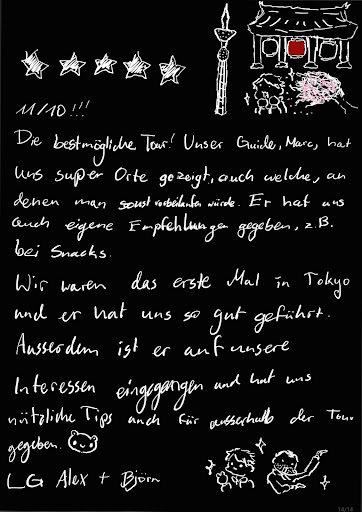 11/10!!!
Die bestmögliche Tour! Unser Guide, Marc, hat
uns super Orte gezeigt, auch welche, an
denen man sonst vorbeilaufen würde. Er hat uns
auch eigene Empfehlungen gegeben, z.B.
bei Snacks.
Wir waren das erste Mal in Tokyo
und er hat uns so gut geführt.
Ausserdem ist er auf unsere
Interessen eingegangen und hat uns
nützliche Tips auch für ausserhalb der Tour
gegeben.
LG Alex + Björn
14/14